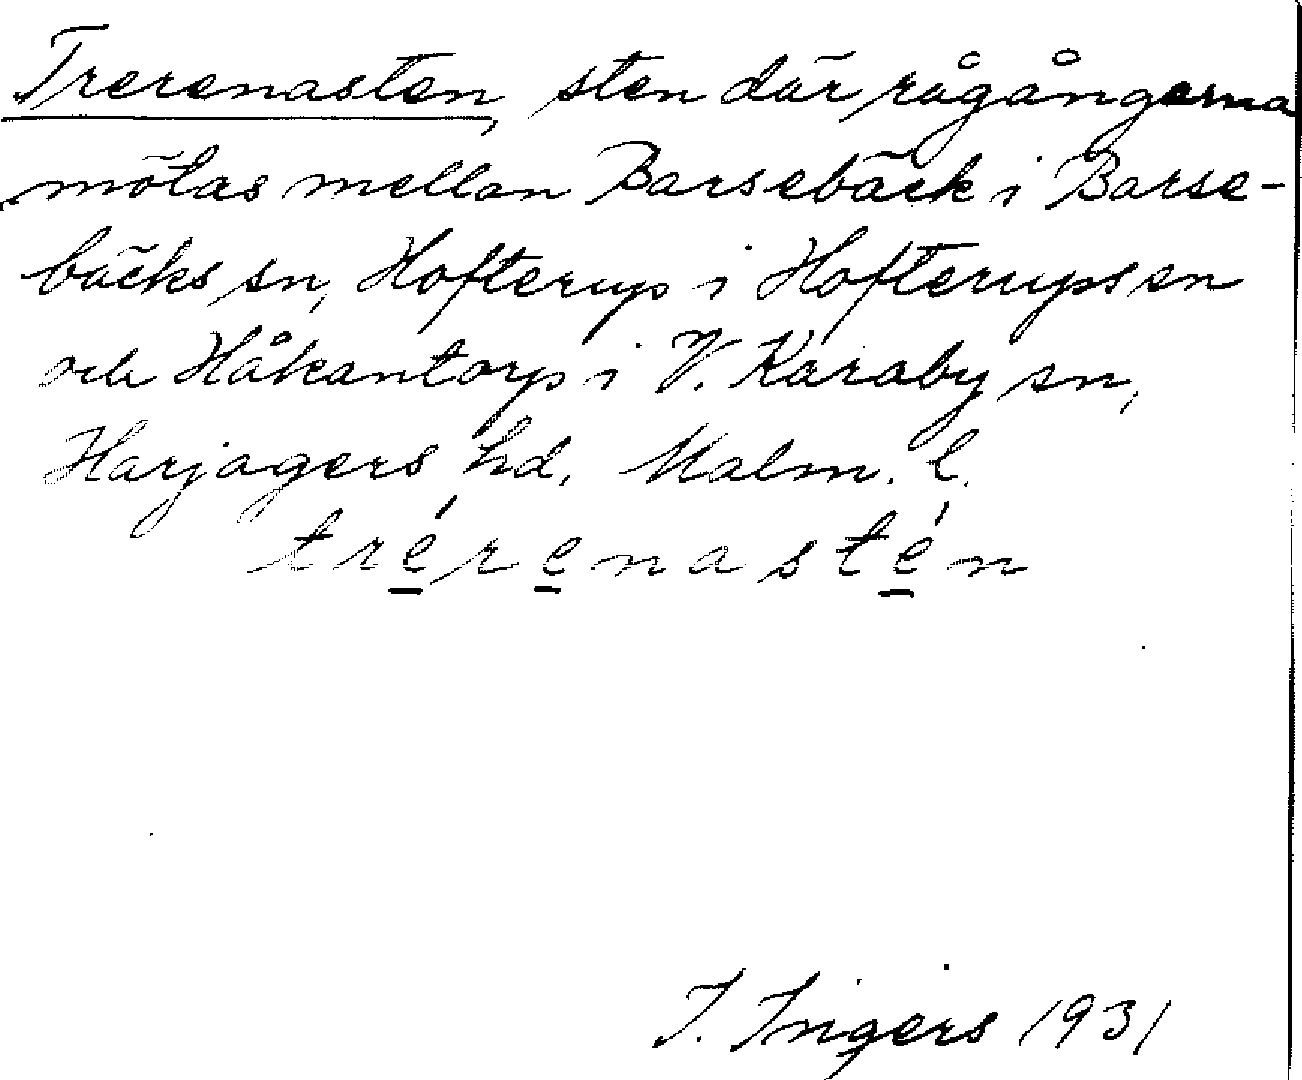 Trerenasten, sten där rågångerna
mötas mellan Barsebäck i Barse-
bäcks sn, Hofterup i Hofterups sn
och Håkantorp i V. Karaby sn,
Harjagers hd. Malm. l.
tré̱re̱nasté̱n
I. Ingers 1931